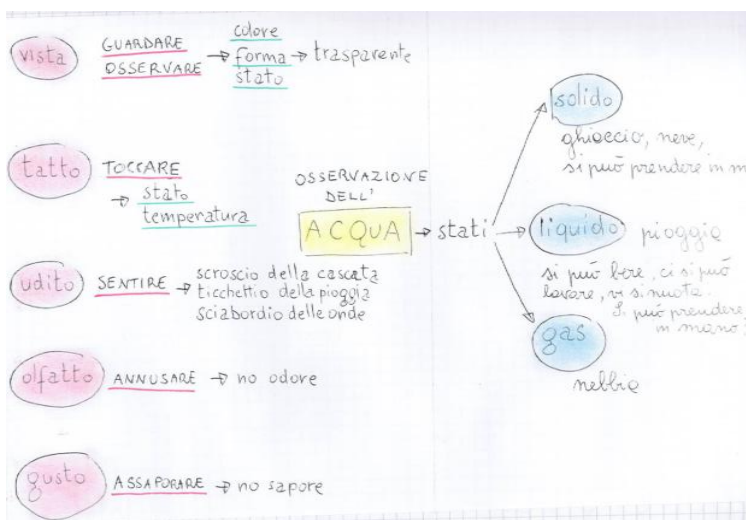 vista
GUARDARE
OSSERVARE
→ colore
forma → trasparente
stato
tatto
TOCCARE
→ stato
temperatura
udito
SENTIRE → scroscio della cascata
ticchettio della pioggia
sciabordio delle onde
olfatto
ANNUSARE → no odore
gusto
ASSAPORARE → no sapore
OSSERVAZIONE
DELL'
ACQUA → stati
solido
ghiaccio, neve,
si può prendere in m
liquido pioggia
si può bere, ci si può
lavare, vi si nuota.
Si può prendere
in mano?
gas
nebbia